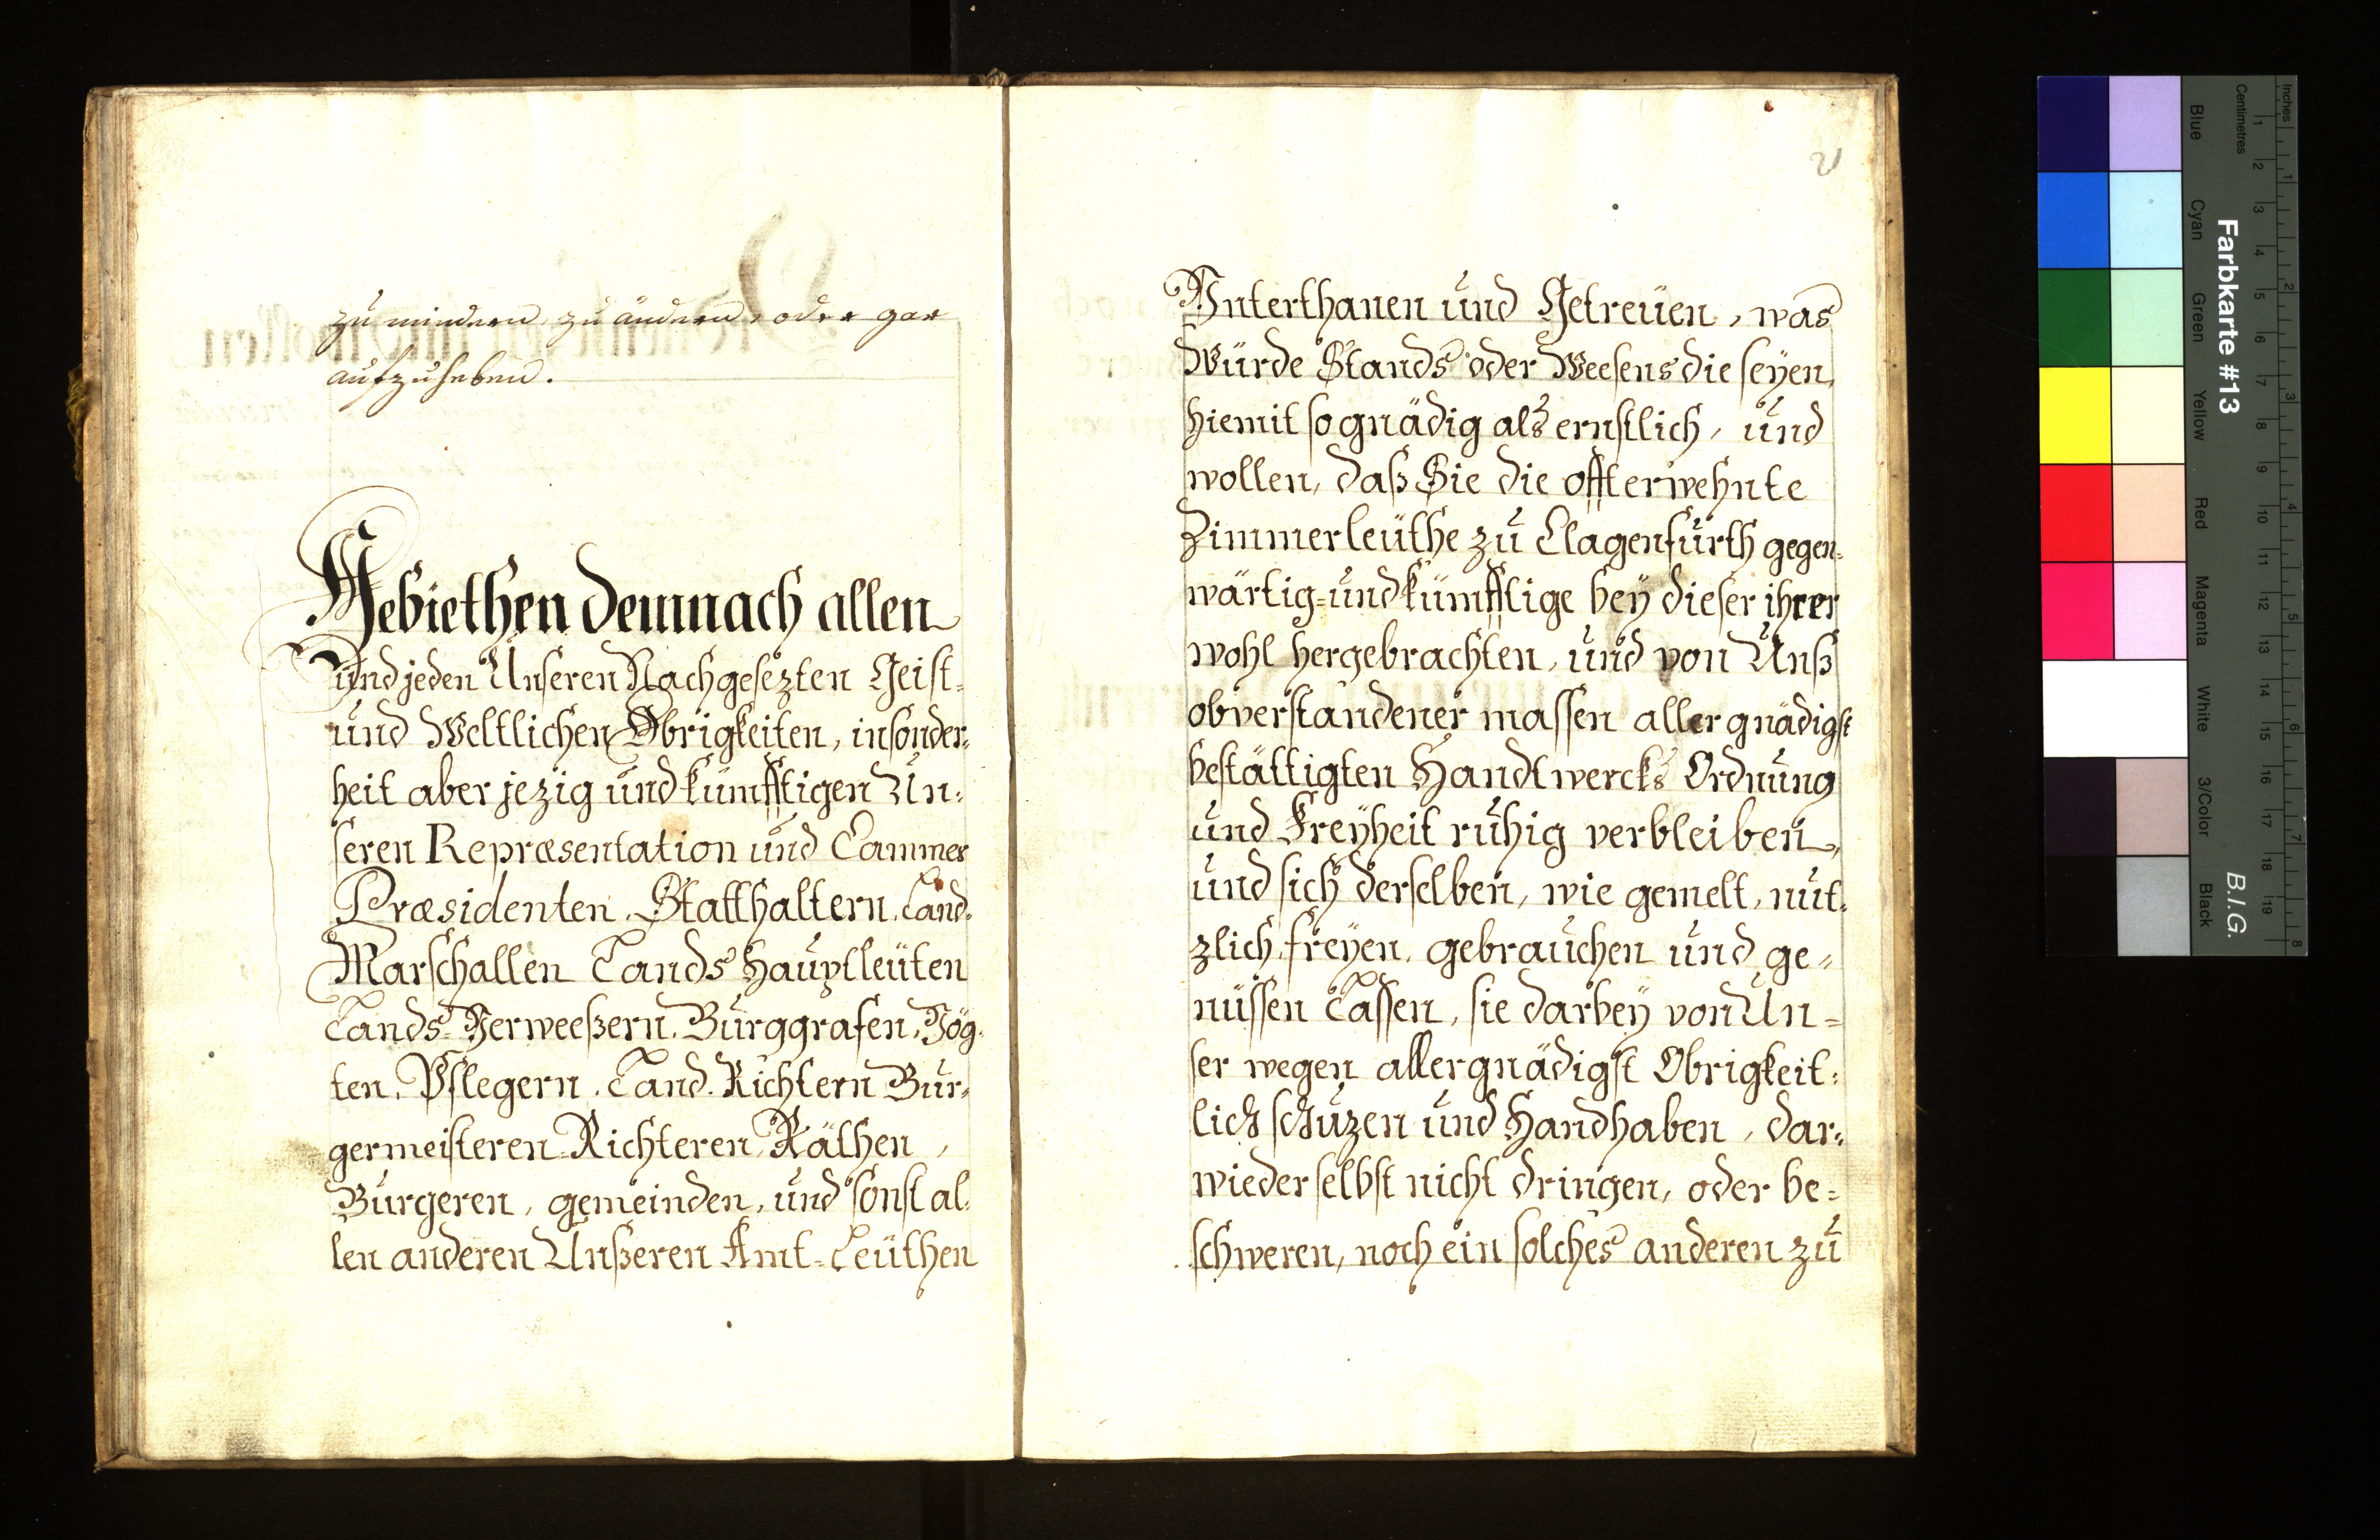 zu mindern, zu ändern, oder gar
aufzuheben.
Gebiethen demnach allen
und jeden Unseren Nachgesezten Geist-
und Weltlichen Obrigkeiten, insonder-
heit aber jezig und kümfftigen Un-
seren Repræsentation und Cammer
Præsidenten, Statthaltern, Land-
Marschallen Lands Haüptleüten
Lands-Verweeßern, Burggrafen, Vög-
ten, Pflegern, Land-Richtern Bur-
germeisteren Richteren, Räthen,
Burgeren, gemeinden, und sonst al-
len anderen Unßeren Amt-Leüthen
Unterthanen und Getreüen, was
Würde Stands oder Weesens die seyen,
hiemit so gnädig alß ernstlich, und
wollen, daß Sie die offterwehnte
Zimmerleüthe zu Clagenfurth gegen-
wärtig- und kümfftige bey dieser ihrer
wohl hergebrachten, und von Unß
obverstandener massen allergnädigst
bestättigten Handtwercks Ordnung
und Freyheit ruhig verbleiben,
und sich derselben, wie gemelt, nut-
zlich, freyen, gebrauchen und ge-
nüssen Lassen, sie darbey von Un-
ser wegen allergnädigst Obrigkeit-
lich schuzen und Handhaben, dar-
wieder selbst nicht dringen, oder be-
schweren, noch ein solches anderen zu
Farbkarte #13
B.I.G.
Inches
Centimetres
Blue
Cyan
Green
Yellow
Red
Magenta
White
3/Color
Black
1 2 3 4 5 6 7 8 9 10 11 12 13 14 15 16 17 18 19
1 2 3 4 5 6 7 8